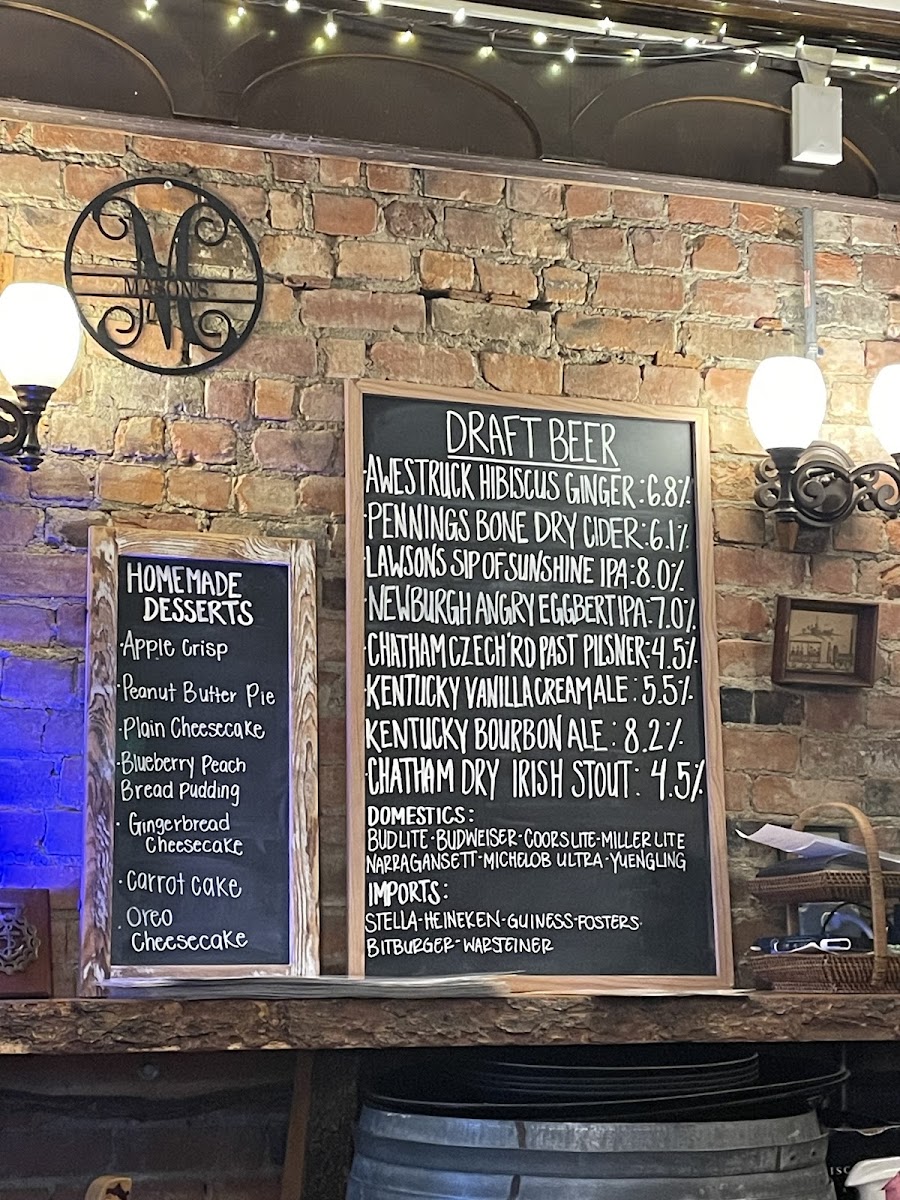 M
MASON'S
HOMEMADE
DESSERTS
·Apple Crisp
·Peanut Butter Pie
·Plain Cheesecake
·Blueberry Peach
Bread Pudding
·Gingerbread
Cheesecake
·Carrot Cake
·Oreo
Cheesecake
DRAFT BEER
·AWESTRUCK HIBISCUS GINGER:6.8%
·PENNINGS BONE DRY CIDER:6.1%
·LAWSONS SIP OF SUNSHINE IPA:8.0%
·NEWBURGH ANGRY EGGBERT IPA-7.0%
·CHATHAM CZECH'RD PAST PILSNER-4.5%
·KENTUCKY VANILLA CREAM ALE:5.5%
KENTUCKY BOURBON ALE: 8.2%
·CHATHAM DRY IRISH STOUT: 4.5%
DOMESTICS:
BUDLITE·BUDWEISER·COORSLITE-MILLER LITE
NARRAGANSETT·MICHELOB ULTRA·YUENGLING
IMPORTS:
STELLA-HEINEKEN-GUINESS-FOSTERS·
BITBURGER-WARSTEINER